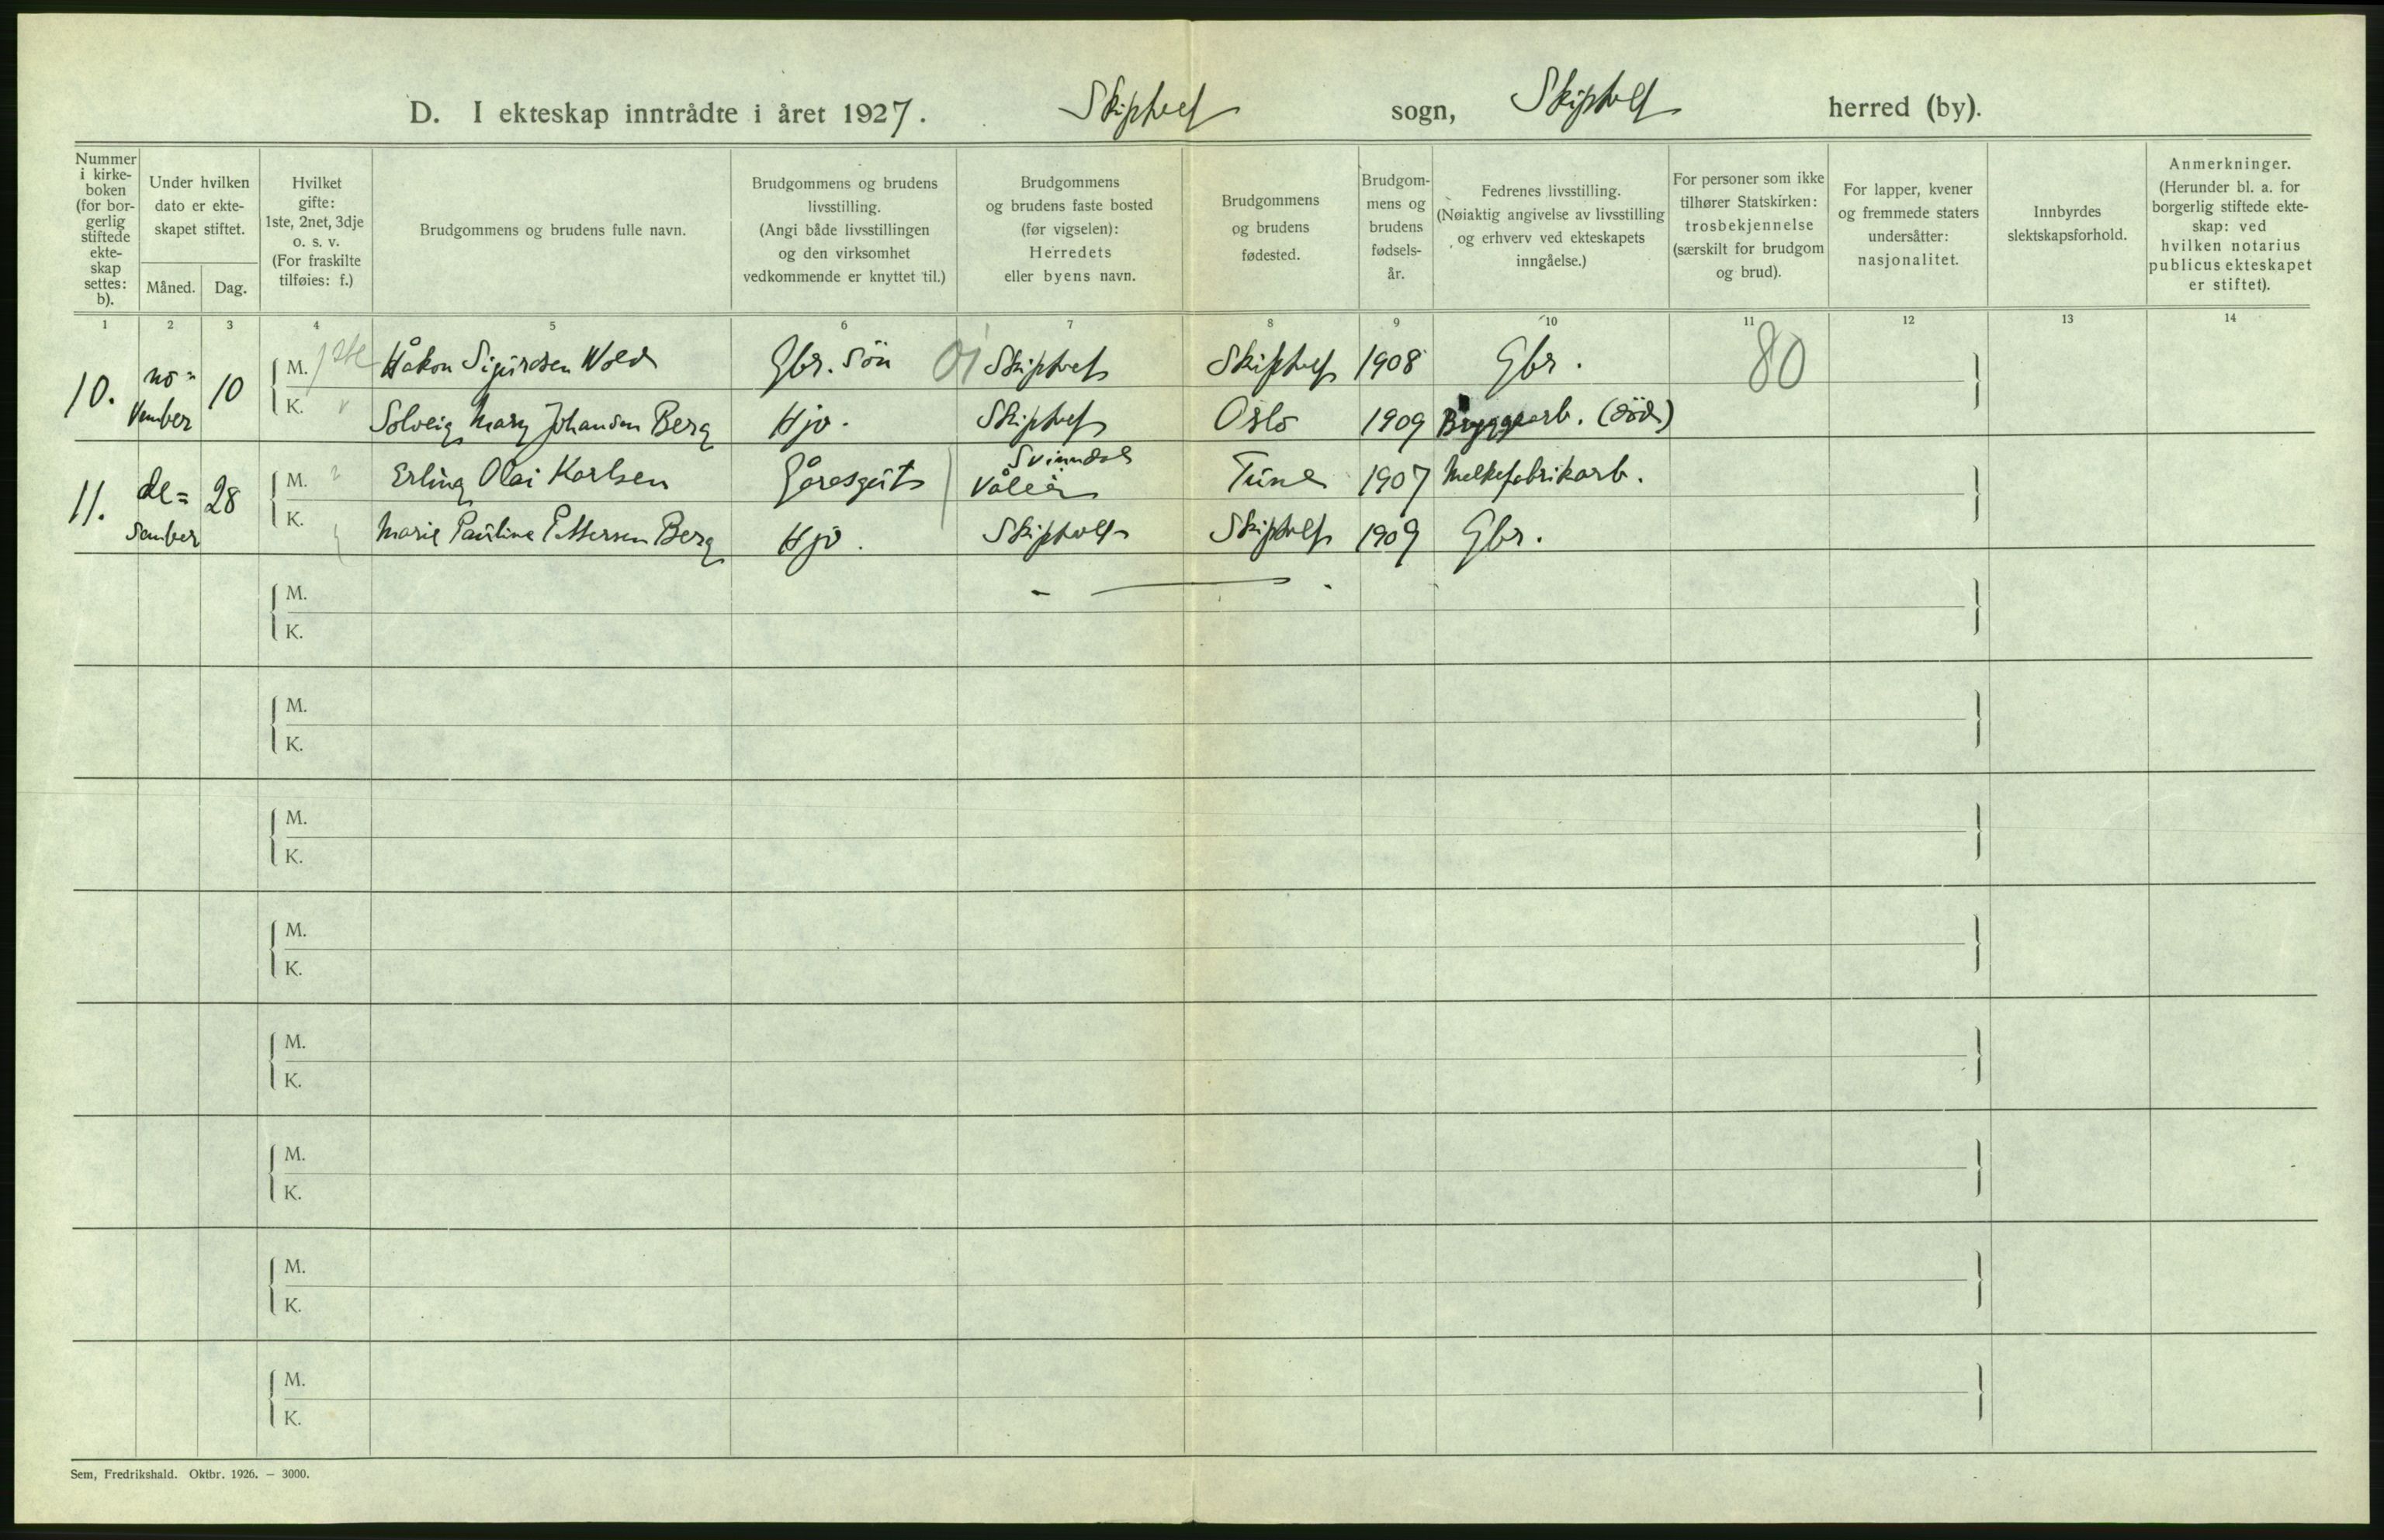 D. I ekteskap inntrådte i året 1927. Skiptvet sogn, Skiptvet herred (by).
Nummer i kirkeboken (for borgerlig stiftede ekteskap settes: b).
Under hvilken dato er ekteskapet stiftet.
Måned. Dag.
Hvilket gifte: 1ste, 2net, 3dje o. s. v. (For fraskilte tilføies: f.)
Brudgommens og brudens fulle navn.
Brudgommens og brudens livsstilling. (Angi både livsstillingen og den virksomhet vedkommende er knyttet til.)
Brudgommens og brudens faste bosted (før vigselen): Herredets eller byens navn.
Brudgommens og brudens fødested.
Brudgommens og brudens fødselsår.
Fedrenes livsstilling. (Nøiaktig angivelse av livsstilling og erhverv ved ekteskapets inngåelse.)
For personer som ikke tilhører Statskirken: trosbekjennelse (særskilt for brudgom og brud).
For lapper, kvener og fremmede staters undersåtter: nasjonalitet.
Innbyrdes slektskapsforhold.
Anmerkninger. (Herunder bl. a. for borgerlig stiftede ekteskap: ved hvilken notarius publicus ekteskapet er stiftet).
1 2 3 4 5 6 7 8 9 10 11 12 13 14
10. no=vember 10 M. 1ste Håkon Sigurdsen Wold Gbr. sön 01 Skiptvet Skiptvet 1908 Gbr. 80
K. Solveig Mary Johansen Berg Hjv. Skiptvet Oslo 1909 Bryggearb. (död)
11. de=sember 28 M. Erling Olai Karlsen Gårdsgut Svinndal Våler Tune 1907 Melkefabrikarb.
K. Marie Pauline Pettersen Berg Hjv. Skiptvet Skiptvet 1909 Gbr.
M.
K.
M.
K.
M.
K.
M.
K.
M.
K.
M.
K.
M.
K.
M.
K.
Sem, Fredrikshald. Oktbr. 1926. — 3000.